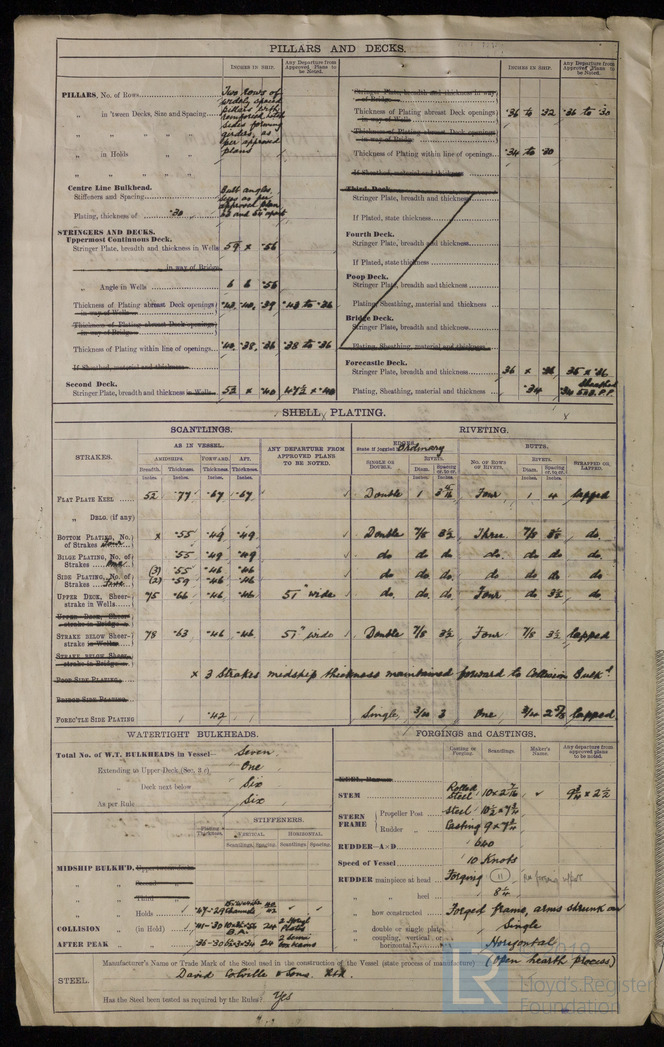 PILLARS AND DECKS.
INCHES IN SHIP.
Any Departure from Approved Plans to be Noted.
PILLARS, No. of Rows
Two Rows of widely spaced pillars with reinforced hatch sides forming girders, as per approved plans
" in 'tween Decks, Size and Spacing
" " " "
" in Holds "
" " " "
Centre Line Bulkhead.
Stiffeners and Spacing
Bulb angles, sizes as per approved plan
Plating, thickness of ·30
STRINGERS AND DECKS.
Uppermost Continuous Deck.
Stringer Plate, breadth and thickness in Wells 59 x ·56
" " in way of Bridge
" Angle in Wells 6 6 ·56
Thickness of Plating abreast Deck openings in way of Wells ·39 ·43 to ·36
Thickness of Plating abreast Deck openings in way of Bridge
Thickness of Plating within line of openings ·38 ·36 ·38 to ·36
If Sheathed, material and thickness
Second Deck.
Stringer Plate, breadth and thickness in Wells 53 x ·40 47½ x ·40
INCHES IN SHIP.
Any Departure from Approved Plans to be Noted.
Stringer Plate, breadth and thickness in way of Bridge
Thickness of Plating abreast Deck openings in way of Wells ·36 to ·32 ·36 to ·30
Thickness of Plating abreast Deck openings in way of Bridge
Thickness of Plating within line of openings ·34 to ·30
If Sheathed, material and thickness
Third Deck.
Stringer Plate, breadth and thickness
If Plated, state thickness
Fourth Deck.
Stringer Plate, breadth and thickness
If Plated, state thickness
Poop Deck.
Stringer Plate, breadth and thickness
Plating, Sheathing, material and thickness
Bridge Deck.
Stringer Plate, breadth and thickness
Plating, Sheathing, material and thickness
Forecastle Deck.
Stringer Plate, breadth and thickness 36 x ·36 35 x ·36
Plating, Sheathing, material and thickness ·34 Sheathed
SHELL PLATING.
SCANTLINGS.
RIVETING.
STRAKES.
AS IN VESSEL.
AMIDSHIPS. FORWARD. AFT.
Breadth. Thickness. Thickness. Thickness.
Inches. Inches. Inches. Inches.
ANY DEPARTURE FROM APPROVED PLANS TO BE NOTED.
EDGES. Ordinary
State if joggled
SINGLE OR DOUBLE.
RIVETS.
Diam. Spacing cr. to cr.
BUTTS.
NO. OF ROWS OF RIVETS.
RIVETS.
Diam. Spacing cr. to cr.
STRAPPED OR LAPPED.
FLAT PLATE KEEL 52 ·77 ·67 ·67 Double 1 Four 1 4 lapped
" DBLG. (if any)
BOTTOM PLATING, No. of Strakes Four x ·55 ·49 ·49 Double 7/8 3½ Three 7/8 do.
BILGE PLATING, No. of Strakes One ·55 ·49 ·49 do do do do do do do
SIDE PLATING, No. of Strakes (3) ·55 ·46 ·46 do do do do do do do
(2) ·59 ·46 ·46
UPPER DECK, Sheerstrake in Wells 75 ·66 ·46 ·46 51" wide do. do. do. Four do 3½ do
UPPER DECK, Sheerstrake in Bridge
STRAKE BELOW Sheerstrake in Wells 78 ·63 ·46 ·46 51" wide Double 7/8 3½ Four 7/8 3½ lapped
STRAKE BELOW Sheerstrake in Bridge
POOP SIDE PLATING
x 3 Strakes midship thickness maintained forward to Collision Bulkd
BRIDGE SIDE PLATING
FOREC'TLE SIDE PLATING ·42 Single 3/4 3 One 3/4 2 5/8 lapped
WATERTIGHT BULKHEADS.
Total No. of W.T. BULKHEADS in Vessel Seven
Extending to Upper Deck (Sec. 3 c) One
" Deck next below Six
As per Rule Six
STIFFENERS.
Plating Thickness. VERTICAL HORIZONTAL
Scantlings. Spacing. Scantlings. Spacing.
MIDSHIP BULKH'D, Upper tween decks
" " Second "
" " Third "
" " Holds ·47-·29 channels
COLLISION " (in Hold) ·41-·30 24
AFTER PEAK " " ·36-·30 24
FORGINGS and CASTINGS.
Casting or Forging. Scantlings. Maker's Name. Any departure from approved plans to be noted.
KEEL, Bar
STEM Rolled Steel 10 x 2 7/16 9¾ x 2½
STERN FRAME Propeller Post Steel 10½ x 7¾
Rudder " Casting 9 x 7¾
RUDDER—A × D 640
Speed of Vessel 10 Knots
RUDDER mainpiece at head Forging 11
" " heel 8¼
" how constructed Forged frame, arms shrunk on
" double or single plate Single
" coupling, vertical or horizontal Horizontal
STEEL.
Manufacturer's Name or Trade Mark of the Steel used in the construction of the Vessel (state process of manufacture) (Open hearth process)
David Colville & Sons. Ltd.
Has the Steel been tested as required by the Rules? Yes
LR
2019
Lloyd's Register
Foundation